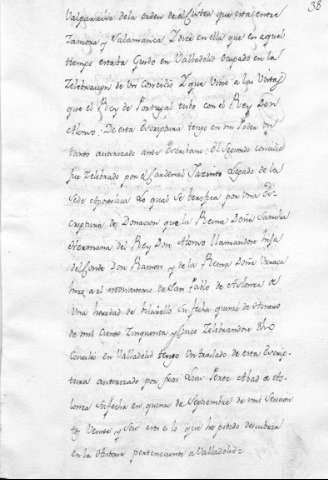 38
Valparaiso de la orden de el Cister que esta entre
Zamora y Salamanca Y dice en ella que en aquel
tiempo estaba Guido en Valladolid ocupado en la
Zelebracion de un Concilio Y que vino a las
que el Rey de Portugal tubo con el Rey Don
Alonso: De esta Escriptura tengo en mi poder un
tanto autorizado ante Escribano: el Segundo concilio
fue Zelebrado por el Cardenal Jacinto Legado de la
Sede Apostolica lo qual se berifica por una Es-
criptura de Donacion que la Reina Doña Sancha
Hermana del Rey Don Alonso llamandose hija
del Conde Don Ramon y de la Reina Doña Urraca
hace a el monasterio de San Pedro de
Una heredad de su fecha quince de
de mil ciento Zinquenta y cinco Zelebrandose
Concilio en Valladolid tengo un traslado de esta Escrip-
tura autorizado por frai Luis Perez Abad de
su fecha en quince de Septiembre de mil
y Veinte y Seis esto es lo que he podido descubrir
en la pertenenciente a Valladolid